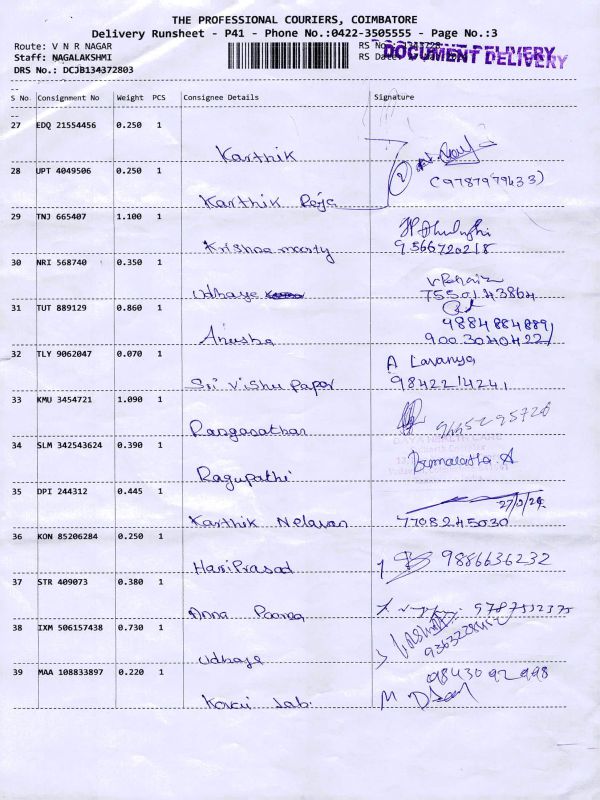 THE PROFESSIONAL COURIERS, COIMBATORE
Delivery Runsheet - P41 - Phone No.:0422-3505555 - Page No.:3
Route: V N R NAGAR
Staff: NAGALAKSHMI
DRS No.: DCJB134372803
RS No.
RS Date
DOCUMENT DELIVERY
DOCUMENT DELIVERY
S No. Consignment No Weight PCS Consignee Details Signature
27 EDQ 21554456 0.250 1
Karthik
28 UPT 4049506 0.250 1
2
(9787979633)
Karthik Raja
29 TNJ 665407 1.100 1
Krishna moorty 9566720218
30 NRI 568740 0.350 1
Udhaya 7550143864
31 TUT 889129 0.860 1
9884884889
Anusha 9003040422
32 TLY 9062047 0.070 1
A Lavanya
Sri Vishu Papar 9842214241
33 KMU 3454721 1.090 1
Rangasathan
34 SLM 342543624 0.390 1
Ragupathi
35 DPI 244312 0.445 1
27/3/24
Karthik Nelavan 7708245030
36 KON 85206284 0.250 1
9886636232
HariPrasad
37 STR 409073 0.380 1
Anna Poorna
38 IXM 506157438 0.730 1
Udhaya
39 MAA 108833897 0.220 1
9843092998
Kovai Lab.